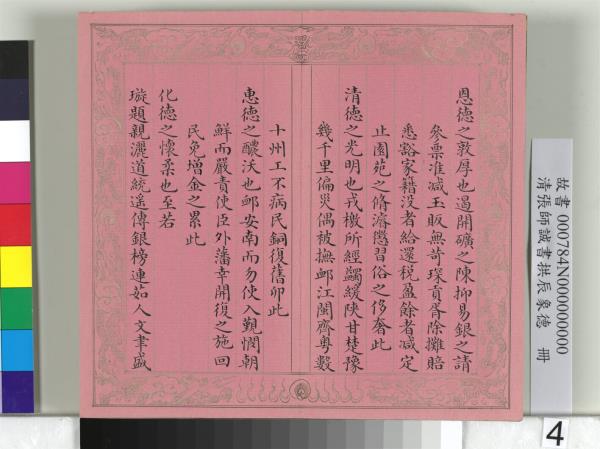 恩德之敦厚也遏開礦之陳抑易銀之請
參票准減玉販無苛琛貢胥除攤賠
悉豁家籍没者給還税盈餘者减定
止園苑之脩濬懲習俗之侈奢此
清德之光明也戎檄所經蠲緩陝甘楚豫
幾千里偏災偶被撫卹江閩齊粤數
十州工不病民銅復舊卯此
惠德之醲沃也卹安南而勿使入覲憫朝
鮮而嚴責使臣外藩幸開復之施回
民免增金之累此
化德之懷柔也至若
璇題親灑道統遥傳銀榜連茹人文聿盛
故書 000784N000000000
清張師誠書拱辰象德 冊
4